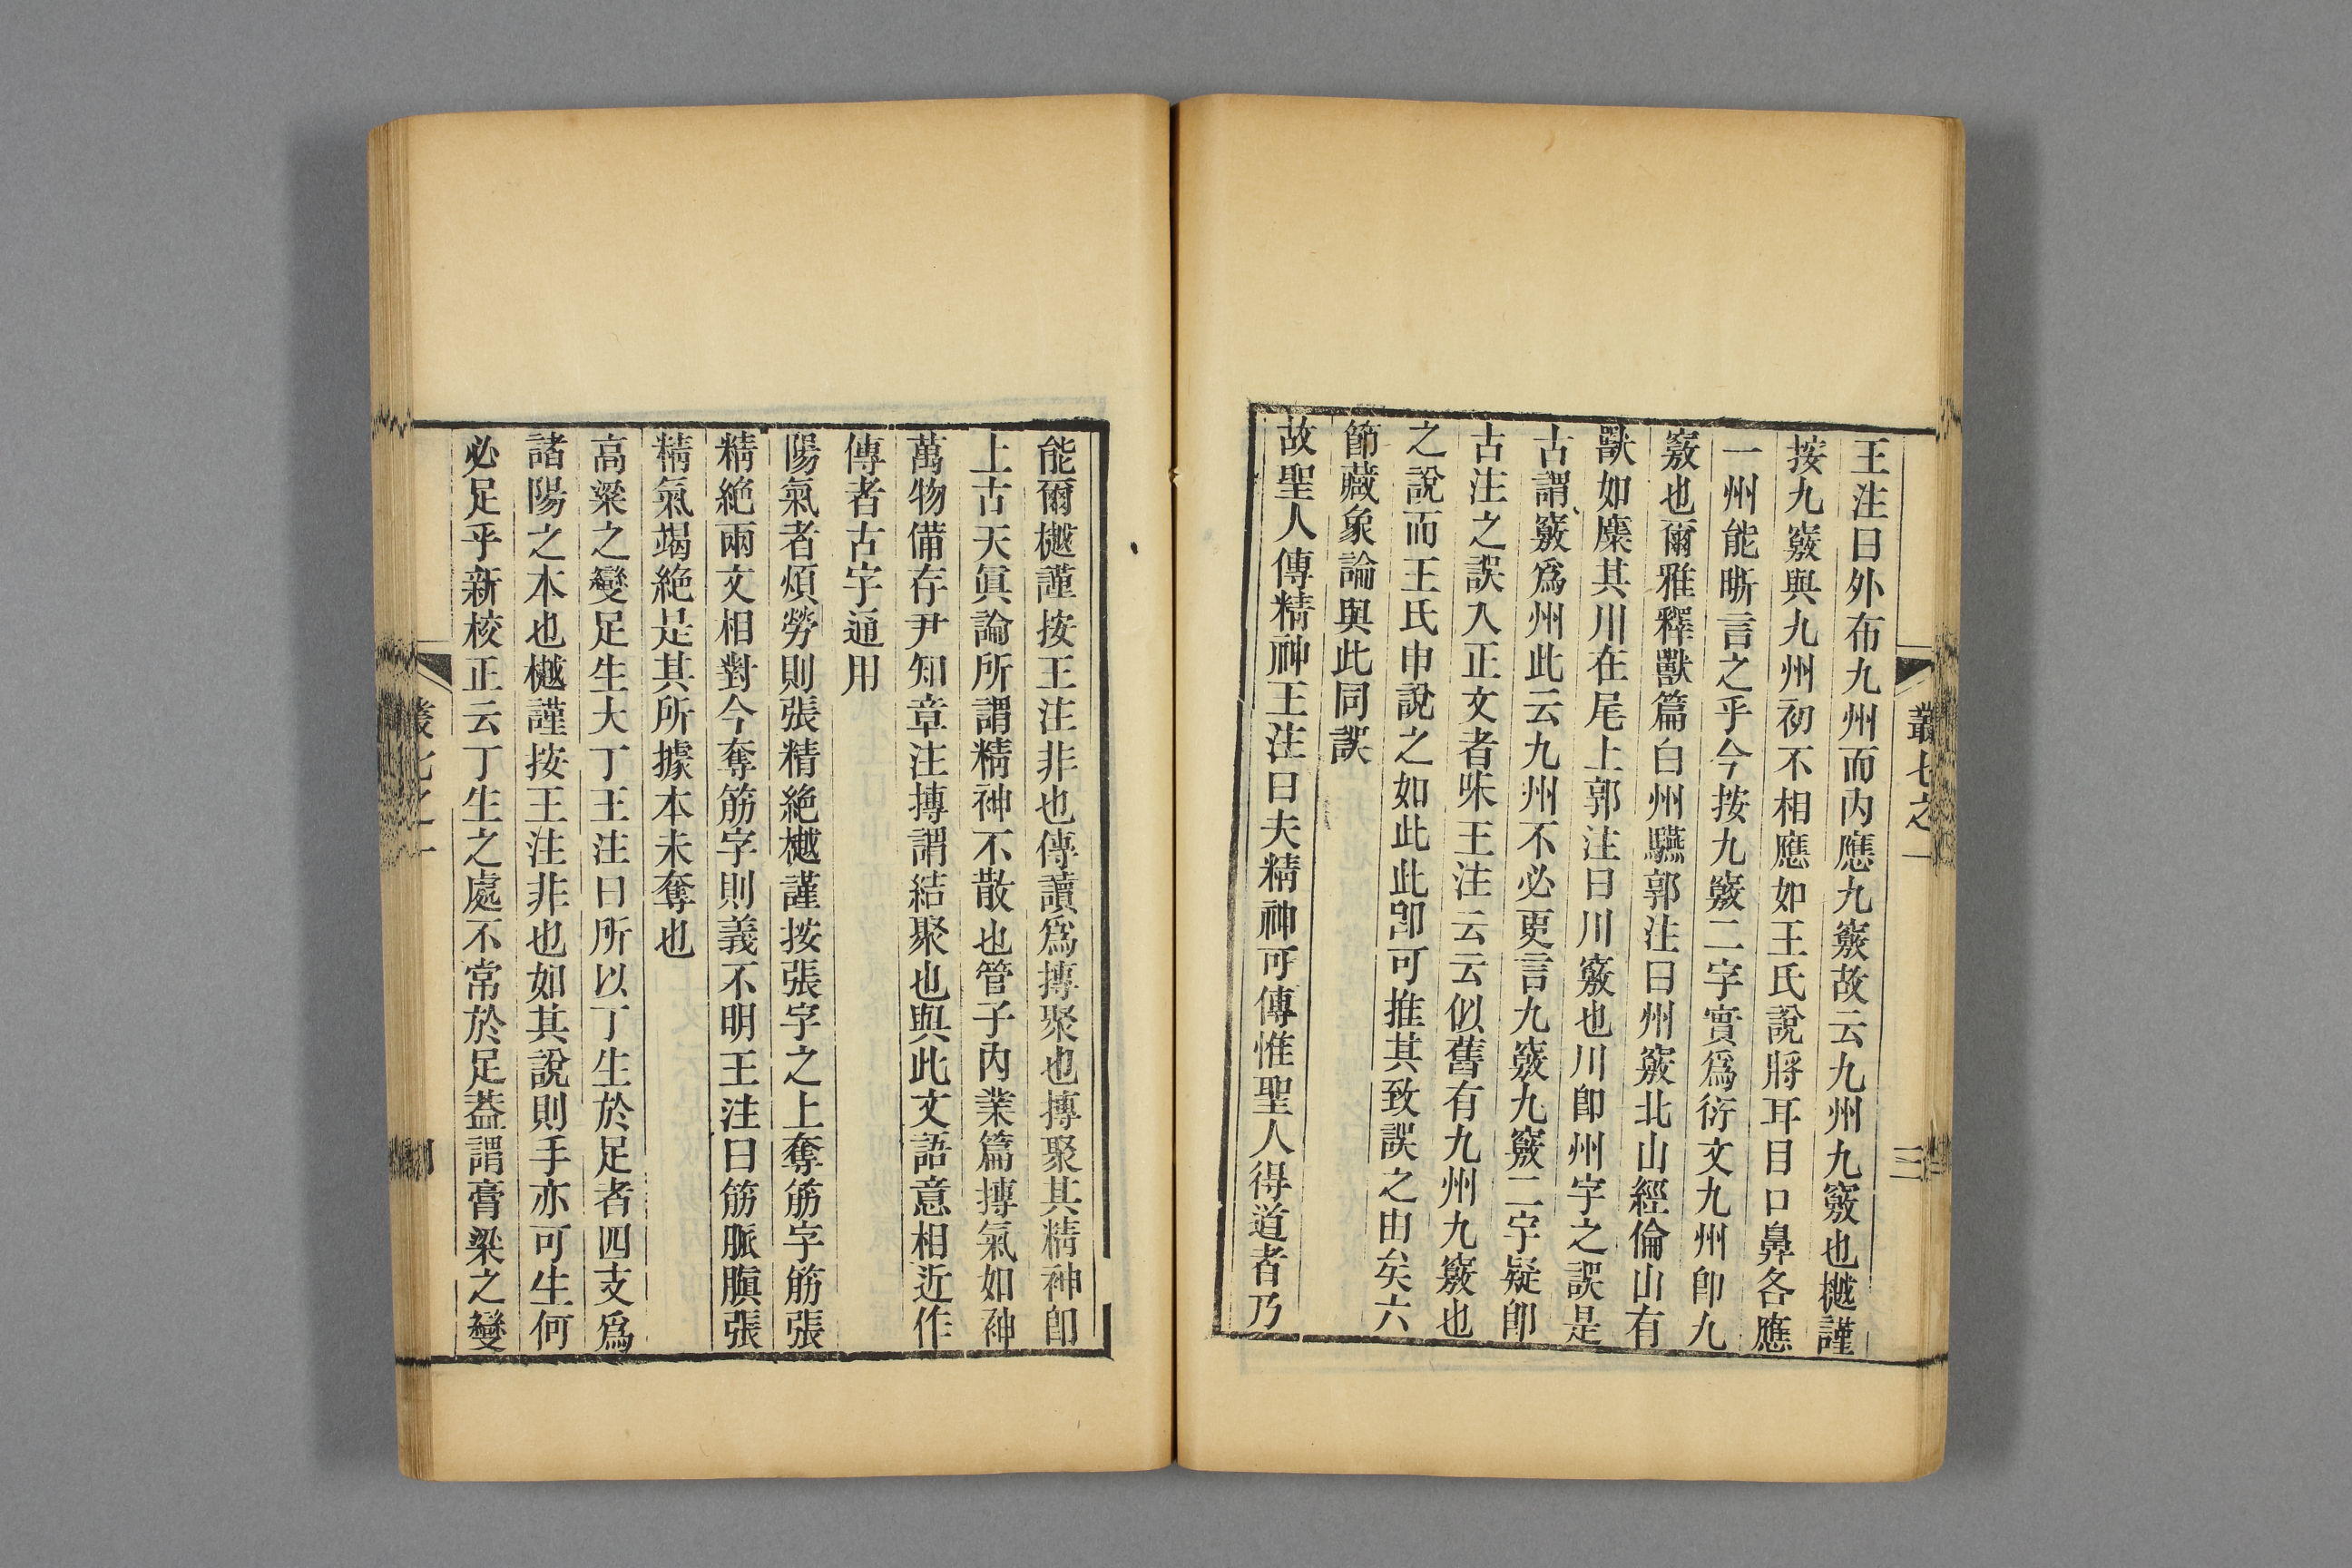 叢七之一
三
王注曰外布九州而內應九竅故云九州九竅也樾謹
按九竅與九州初不相應如王氏說將耳目口鼻各應
一州能晰言之乎今按九竅二字實爲衍文九州卽九
竅也爾雅釋獸篇白州驠郭注曰州竅北山經倫山有
獸如麋其川在尾上郭注曰川竅也川卽州字之誤是
古謂竅爲州此云九州不必更言九竅九竅二字疑卽
古注之誤入正文者味王注云云似舊有九州九竅也
之說而王氏申說之如此此卽可推其致誤之由矣六
節藏象論與此同誤
故聖人傳精神王注曰夫精神可傳惟聖人得道者乃
能爾樾謹按王注非也傳讀爲摶聚也摶聚其精神卽
上古天眞論所謂精神不散也管子內業篇摶氣如神
萬物備存尹知章注摶謂結聚也與此文語意相近作
傳者古字通用
陽氣者煩勞則張精絶樾謹按張字之上奪筋字筋張
精絶兩文相對今奪筋字則義不明王注曰筋脈䐜張
精氣竭絶是其所據本未奪也
高梁之變足生大丁王注曰所以丁生於足者四支爲
諸陽之本也樾謹按王注非也如其說則手亦可生何
必足乎新校正云丁生之處不常於足蓋謂膏梁之變
叢七之一